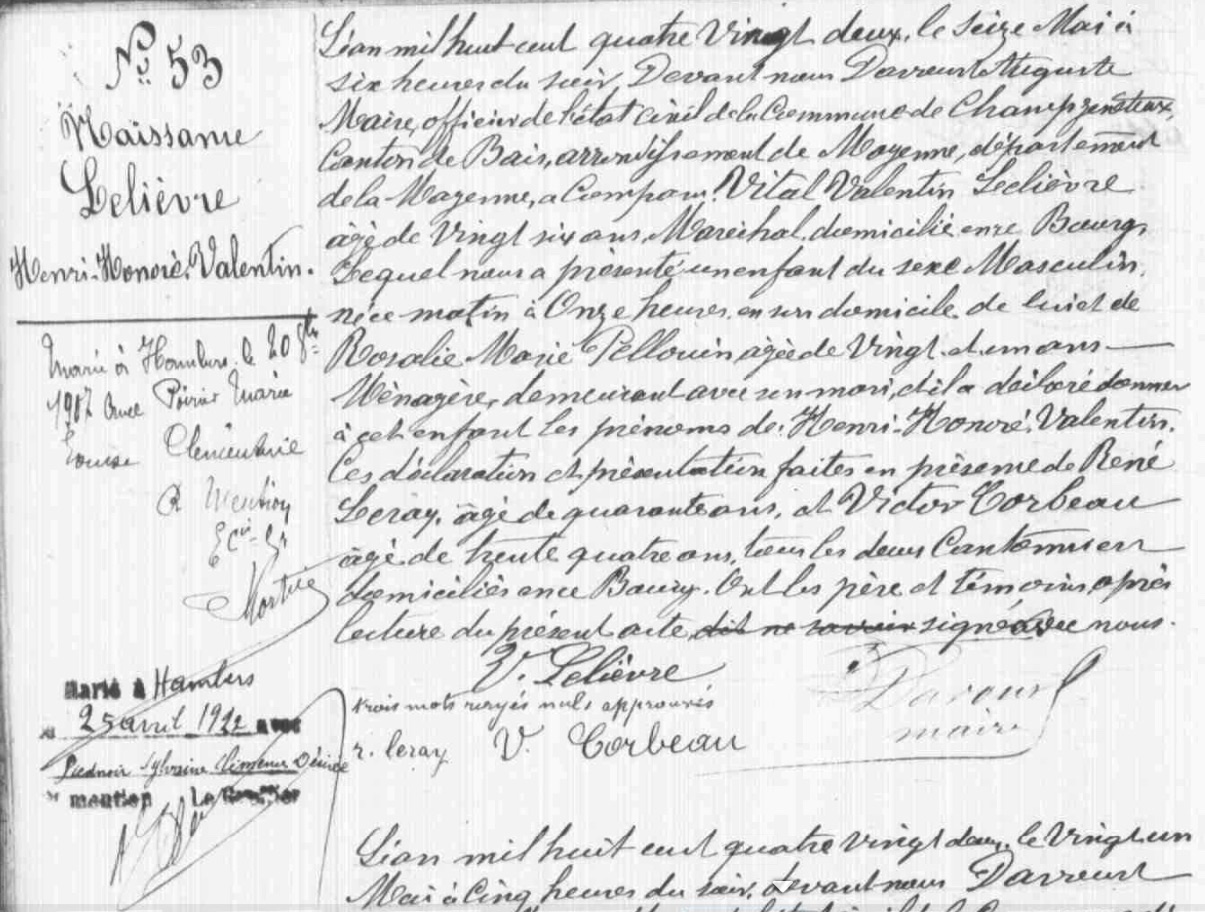 N° 53
Naissance
Lelièvre
Henri-Honoré, Valentin.
Marié à Hambers le 20
1907 avec Poirier Marie
Louise Clémentine
Mention
Marié à Hambers
25 avril 1922 avec
Sylvaine
mention Le Greffier
L'an mil huit cent quatre Vingt deux, le Seize Mai à
six heures du soir, Devant nous Davreust Auguste
Maire, officier de l'état civil de la Commune de Champgenéteux,
Canton de Bais, arrondissement de Mayenne, département
de la Mayenne, a Comparu Vital Valentin Lelièvre
âgé de Vingt six ans, Maréchal, domicilié en ce Bourg,
Lequel nous a présenté un enfant du sexe Masculin,
né ce matin à Onze heures, en son domicile, de lui et de
Rosalie Marie Pellouin, âgée de Vingt et un ans
Ménagère, demeurant avec son mari, et il a déclaré donner
à cet enfant les prénoms de: Henri-Honoré, Valentin.
Ces déclaration et présentation faites en présence de René
Leray, âgé de quarante ans, et Victor Corbeau
âgé de trente quatre ans, tous les deux Cantonniers
domiciliés en ce Bourg. Ont les père et témoins, après
lecture du présent acte, dit ne savoir signé avec nous.
V. Lelièvre
trois mots rayés nuls approuvés
Davreust
maire
r. leray V. Corbeau
L'an mil huit cent quatre vingt deux, le Vingt un
Mai à Cinq heures du soir, devant nous Davreust